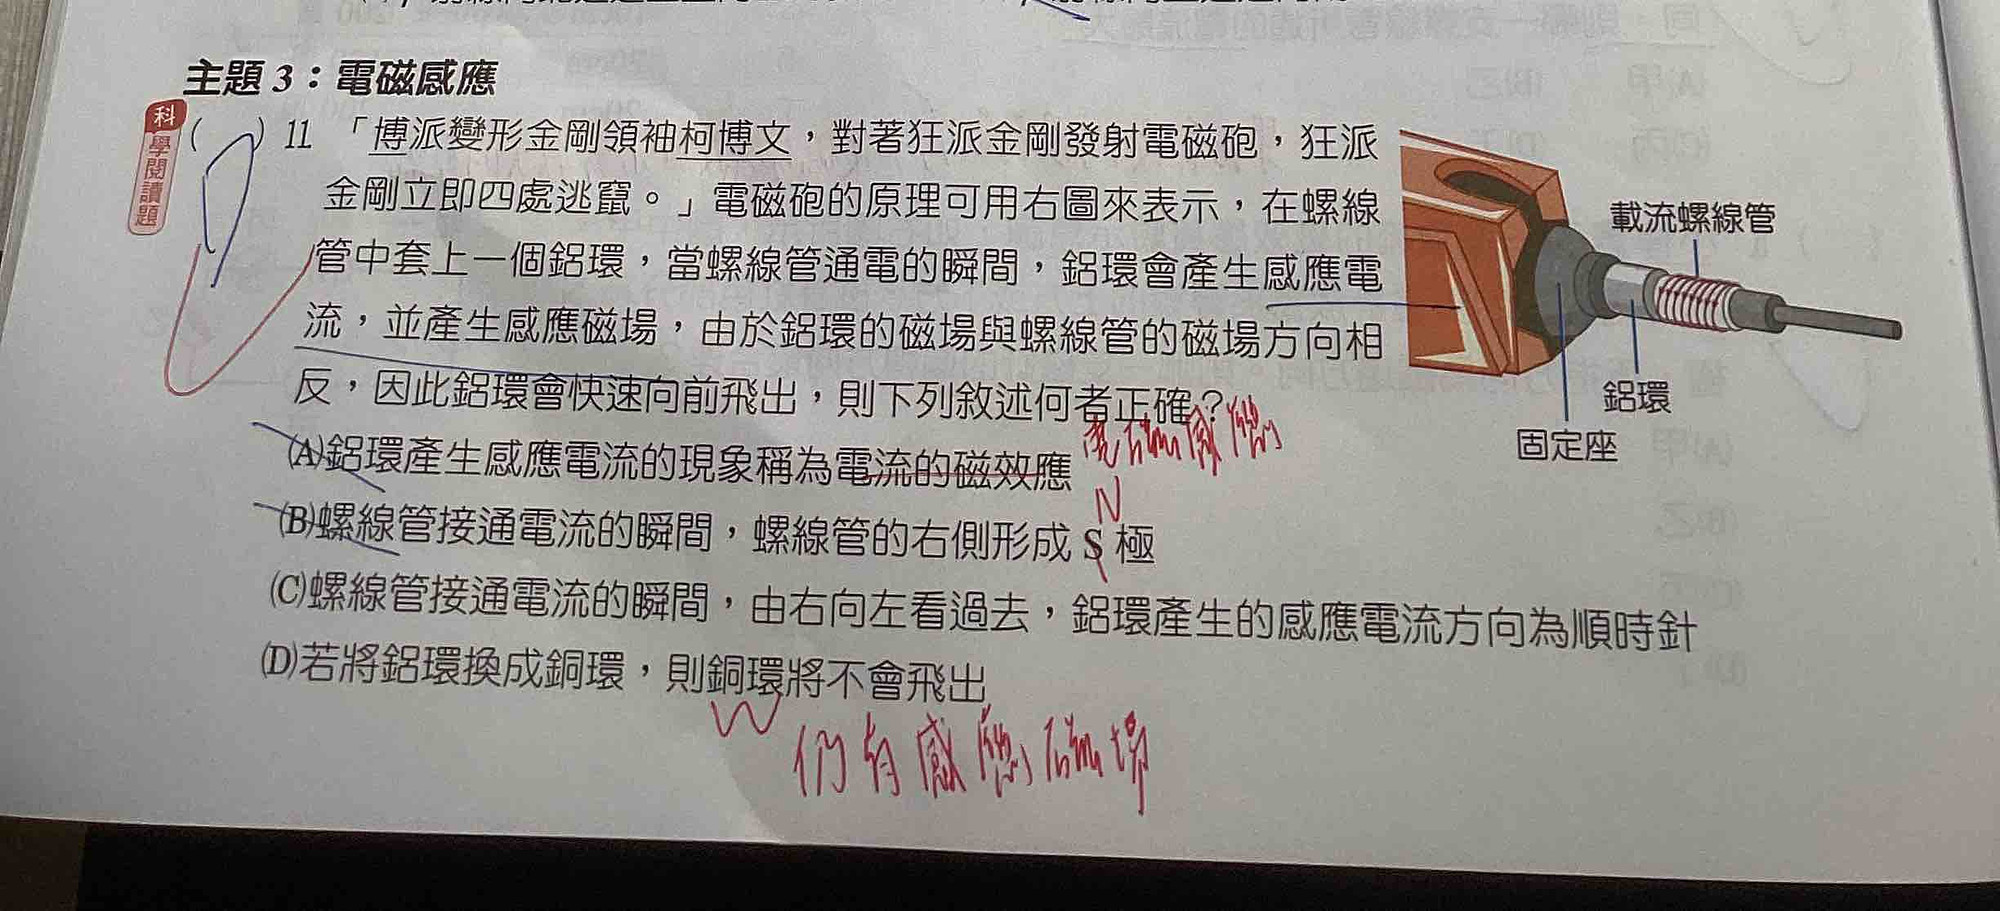 主題3：電磁感應
科學閱讀題
( ) 11 「博派變形金剛領袖柯博文，對著狂派金剛發射電磁砲，狂派
金剛立即四處逃竄。」電磁砲的原理可用右圖來表示，在螺線
管中套上一個鋁環，當螺線管通電的瞬間，鋁環會產生感應電
流，並產生感應磁場，由於鋁環的磁場與螺線管的磁場方向相
反，因此鋁環會快速向前飛出，則下列敘述何者正確？
電磁感應
(A)鋁環產生感應電流的現象稱為電流的磁效應
N
(B)螺線管接通電流的瞬間，螺線管的右側形成S極
(C)螺線管接通電流的瞬間，由右向左看過去，鋁環產生的感應電流方向為順時針
(D)若將鋁環換成銅環，則銅環將不會飛出
有感應磁場
載流螺線管
鋁環
固定座